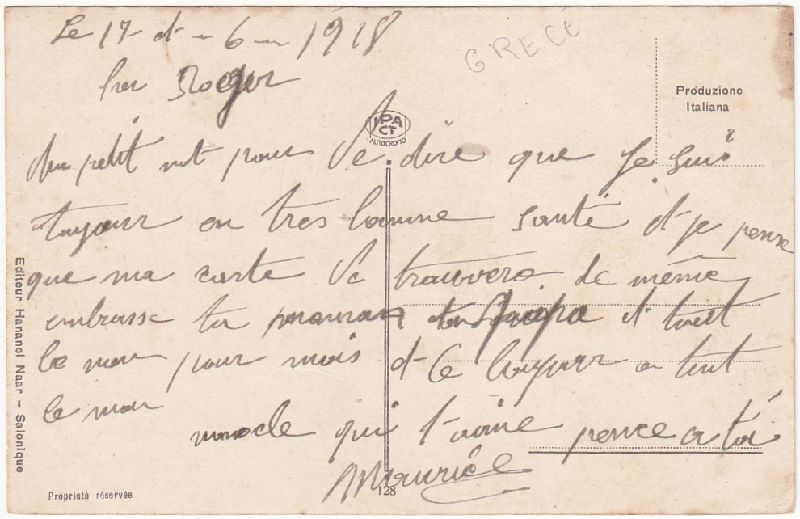 Le 17 - d - 6 - 1918
GRECE
Cher Roger
Produzione
Italiana
IPA
CT
Un petit mot pour te dire que je sui
toujour en tres bonne santé et je pense
que ma carte te trouvera de même
embrasse ta maman ton papa et tout
le mon pour mois et le bonjour a tout
le mon
qui t'aime pense a toi
Maurice
Editeur Hananel Naar - Salonique
Proprieté réservée
128